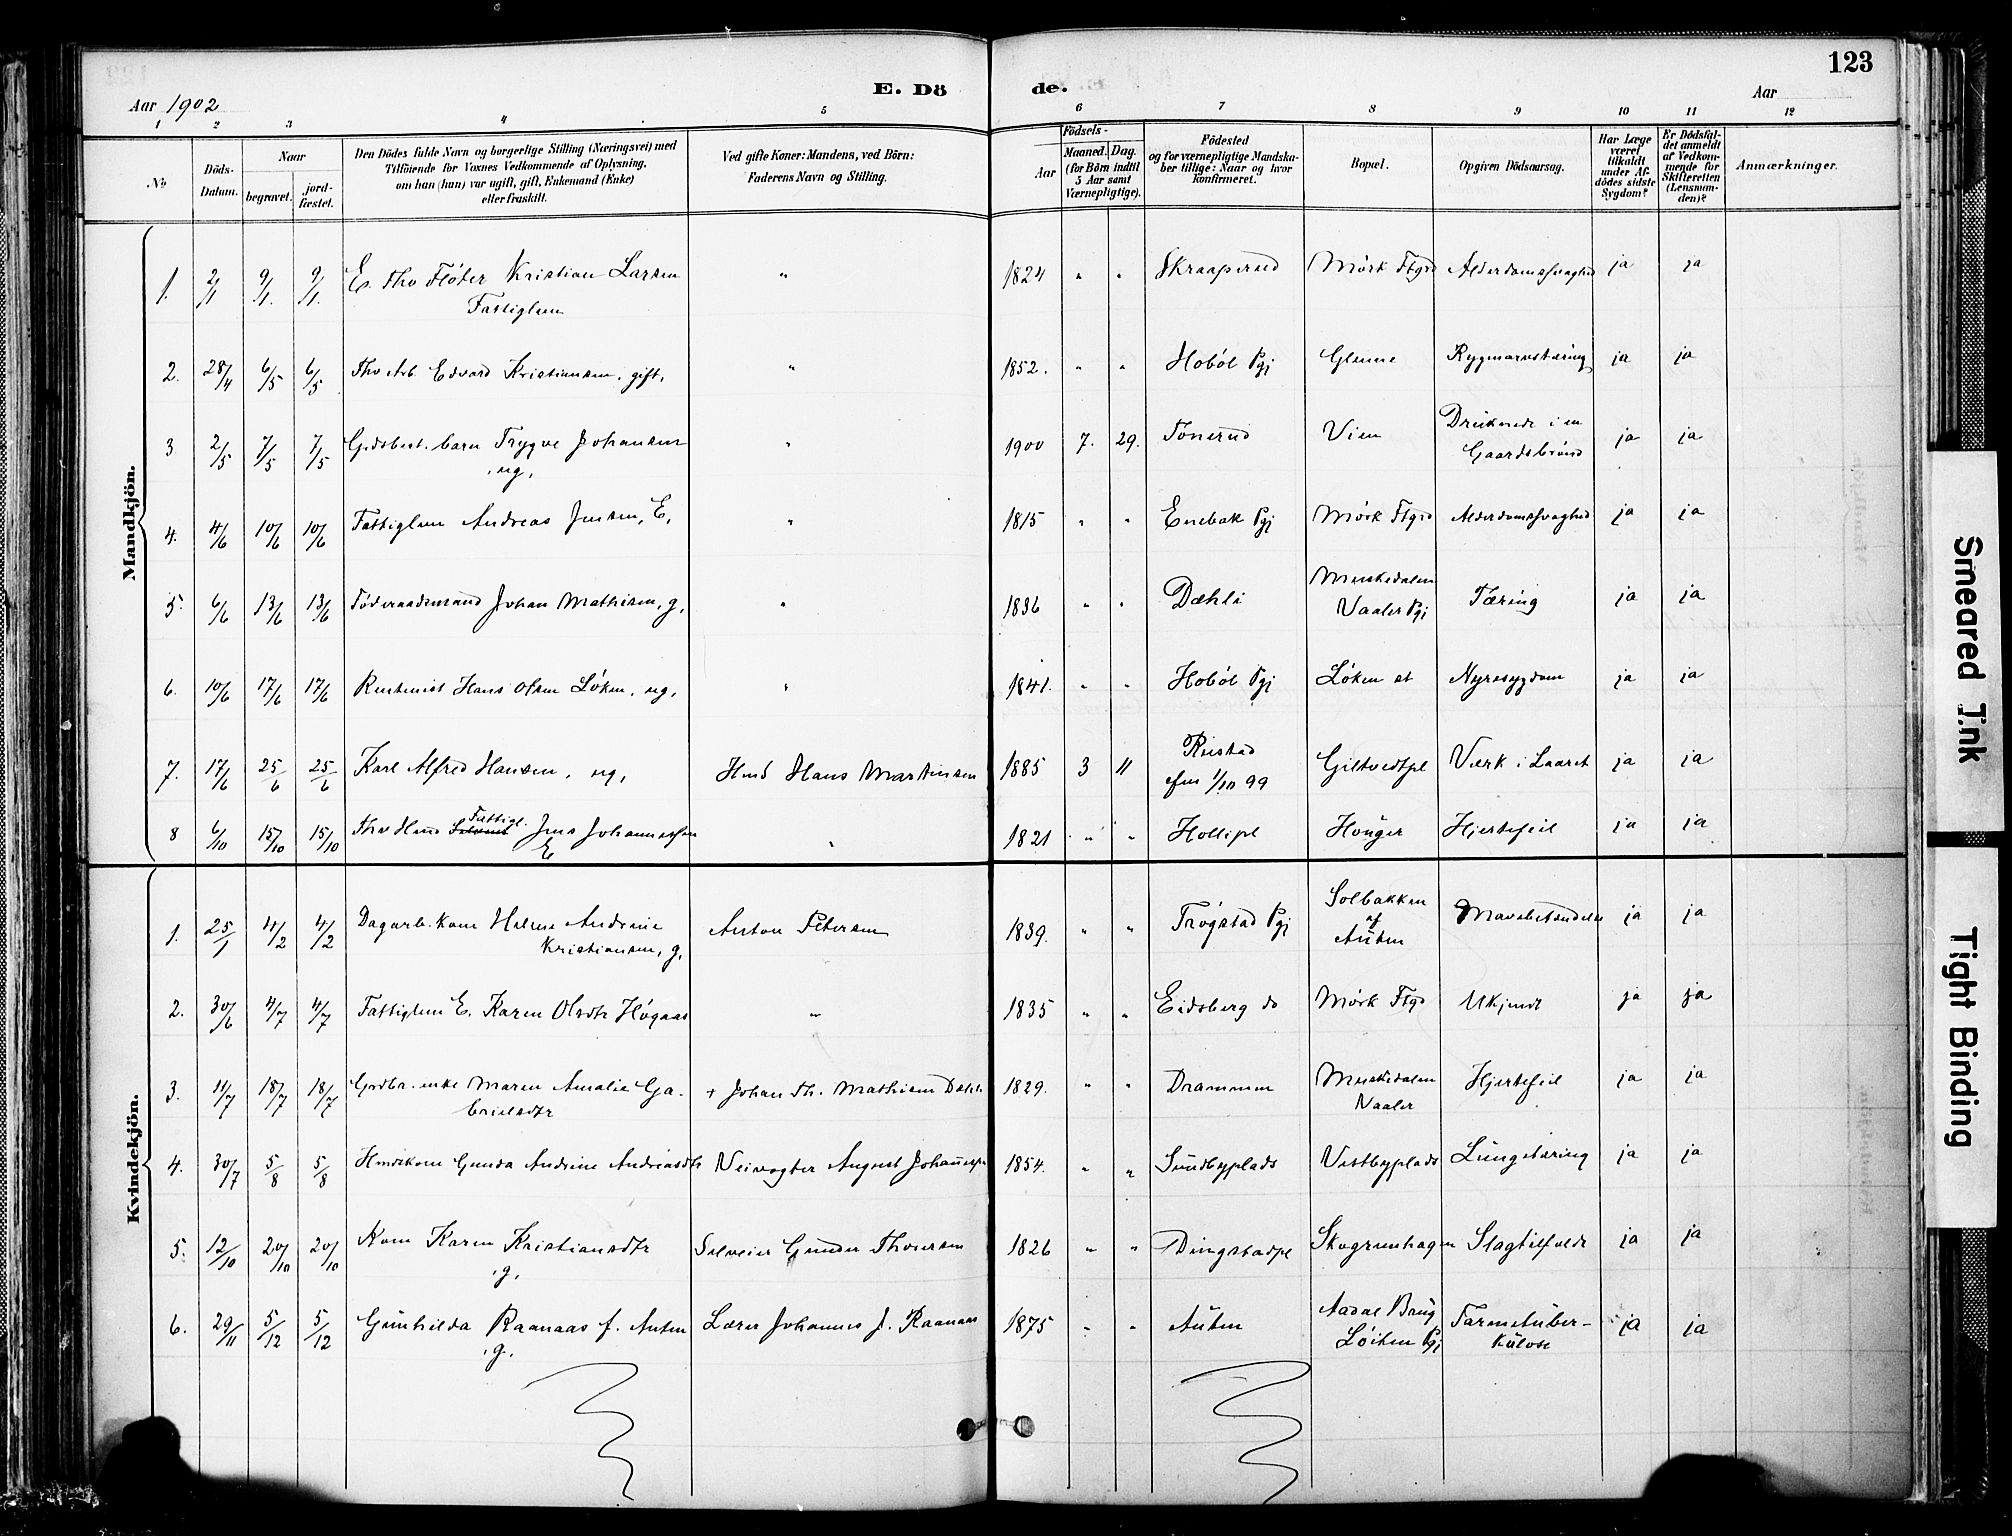 123
E. Döde.
Aar 1902
Aar
1 2 3 4 5 6 7 8 9 10 11 12
No
Döds-Datum.
Naar
begravet.
jord-fæstet.
Den Dödes fulde Navn og borgerlige Stilling (Næringsvei) med
Tilföiende for Voxnes Vedkommende af Oplysning,
om han (hun) var ugift, gift, Enkemand (Enke)
eller fraskilt.
Ved gifte Koner: Mandens, ved Börn:
Faderens Navn og Stilling.
Födsels-
Aar
Maaned. Dag.
(for Börn indtil
5 Aar samt
Værnepligtige).
Födested
og for værnepligtige Mandska-
ber tillige: Naar og hvor
konfirmeret.
Bopæl.
Opgiven Dödsaarsag.
Har Læge
været
tilkaldt
under Af-
dödes sidste
Sygdom?
Er Dödsfal-
det anmeldt
af Vedkom-
mende for
Skifteretten
(Lensman-
den)?
Anmærkninger.
Mandkjön.
1. 2/1 9/1. 9/1. E. Thv Fløter Kristian Larsen " 1824 " " Skraaperud Mörk Ftgrd Alderdomssvaghed ja ja
Fattiglem
2. 28/4 6/5 6/5 Thv Arb. Edvard Kristiansen, gift, " 1852. " " Hoböl Pgj Glenne Rygmarvstæring ja ja
3 2/5 7/5 7/5 Grdbest. barn Trygve Johansen " 1900 7. 29. Tonerud Vien Druknede i en
Gaardsbrönd ja ja
ug,
4. 4/6 10/6 10/6 Fattiglem Andreas Jensen, E, " 1815 " " Enebak Pgj Mörk Ftgrd Alderdomssvaghed ja ja
5. 6/6 13/6 13/6 Föderaadsmand Johan Mathisen, g, " 1836 " " Dæhli
Vaaler Pgj Tæring ja ja
6. 10/6 17/6 17/6 Rentenist Hans Olsen Löken, ug, " 1841. " " Hoböl Pgj Löken et Nyresygdom ja ja
7. 17/6 25/6 25/6 Karl Alfred Hansen, ug, Hmd Hans Martinsen 1885 3 11 Rustad
1/10 99 Giltvedtpl Værk i Laaret ja ja
8 6/10 15/10 15/10 Thv Hmd Fattigl. Jens Johannessen " 1821 " " Hollipl Honger Hjertefeil ja ja
E
Kvindekjön.
1. 25/1 4/2 4/2 Dagarb. kone Helene Andrine
Kristiansen, g, Anton Petersen 1839. " " Trögstad Pgj Solbakken
af
Auten Mavebetændelse ja ja
2. 30/6 4/7 4/7 Fattiglem E. Karen Olsdtr Högaas " 1835 " " Eidsberg do Mörk Ftgd Ukjendt ja ja
3. 11/7 18/7 18/7 Grdbr. enke Maren Amalie Ga-
brielsdtr + Johan Th. Mathisen Dæhli 1829. " " Drammen
Vaaler Hjertefeil ja ja
4. 30/7 5/8 5/8 Hmdskone Gunda Andrine Andreasdtr Veivogter August Johannesen 1854. " " Sundbyplads Vestbyplads Lungetæring ja ja
5. 12/10 20/10 20/10 Kone Karen Kristiansdtr
g, Selveier Gunder Thoresen 1826 " " Dingstadpl Skogrenhagen Slagtilfælde ja ja
6. 29/11 5/12 5/12 Gunhilda Raanaas f. Auten
g. Lærer Johannes J. Raanaas 1875 " " Auten Aadal Brug
Löiten Pgj Tarmetuber-
kulose ja ja
Smeared Ink
Tight Binding